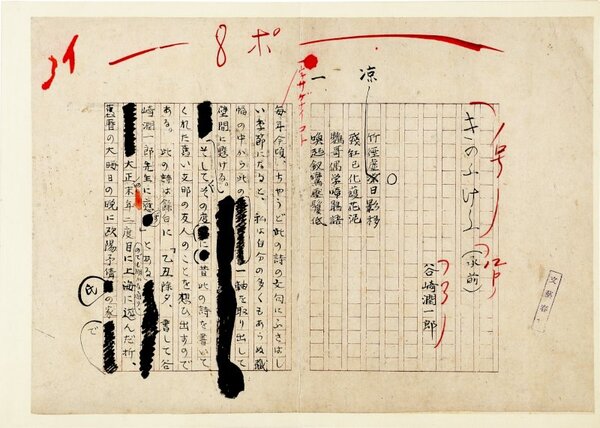 8ポ
きのふけふ(承前)
谷崎潤一郎
一
竹逕虚涼日影移
残紅已化護花泥
鸚哥偶学啼鵑語
喚起釵鸞墜鬢低
毎年今頃、ちやうど此の詩の文句にふさはし
い季節になると、私は自分の多くもあらぬ蔵
幅の中から此の一軸を取り出して
壁間に懸ける。
そしてその度に昔此の詩を書いて
くれた善い支那の友人のことを想ひ出すので
ある。此の詩は録白に「乙丑除夕、書して谷
崎潤一郎先生に」とある
大正末年二度目に上海に遊んだ折、
旧暦の大晦日の晩に欧陽予倩氏の家で
文藝春